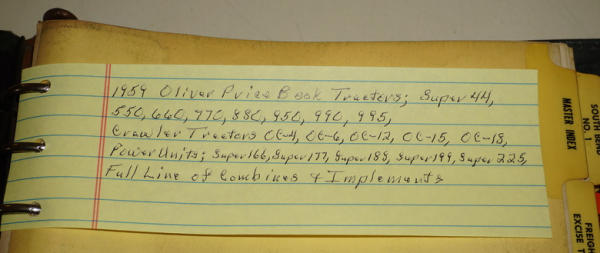 1959 Oliver Price Book Tractors; Super 44,
550, 660, 770, 880, 950, 990, 995,
Crawler Tractors OC-4, OC-6, OC-12, OC-15, OC-18,
Power Units; Super 166, Super 177, Super 188, Super 199, Super 225,
Full Line of Combines & Implements
MASTER INDEX
SOUTH BEND
NO. 1
FREIGH
EXCISE T